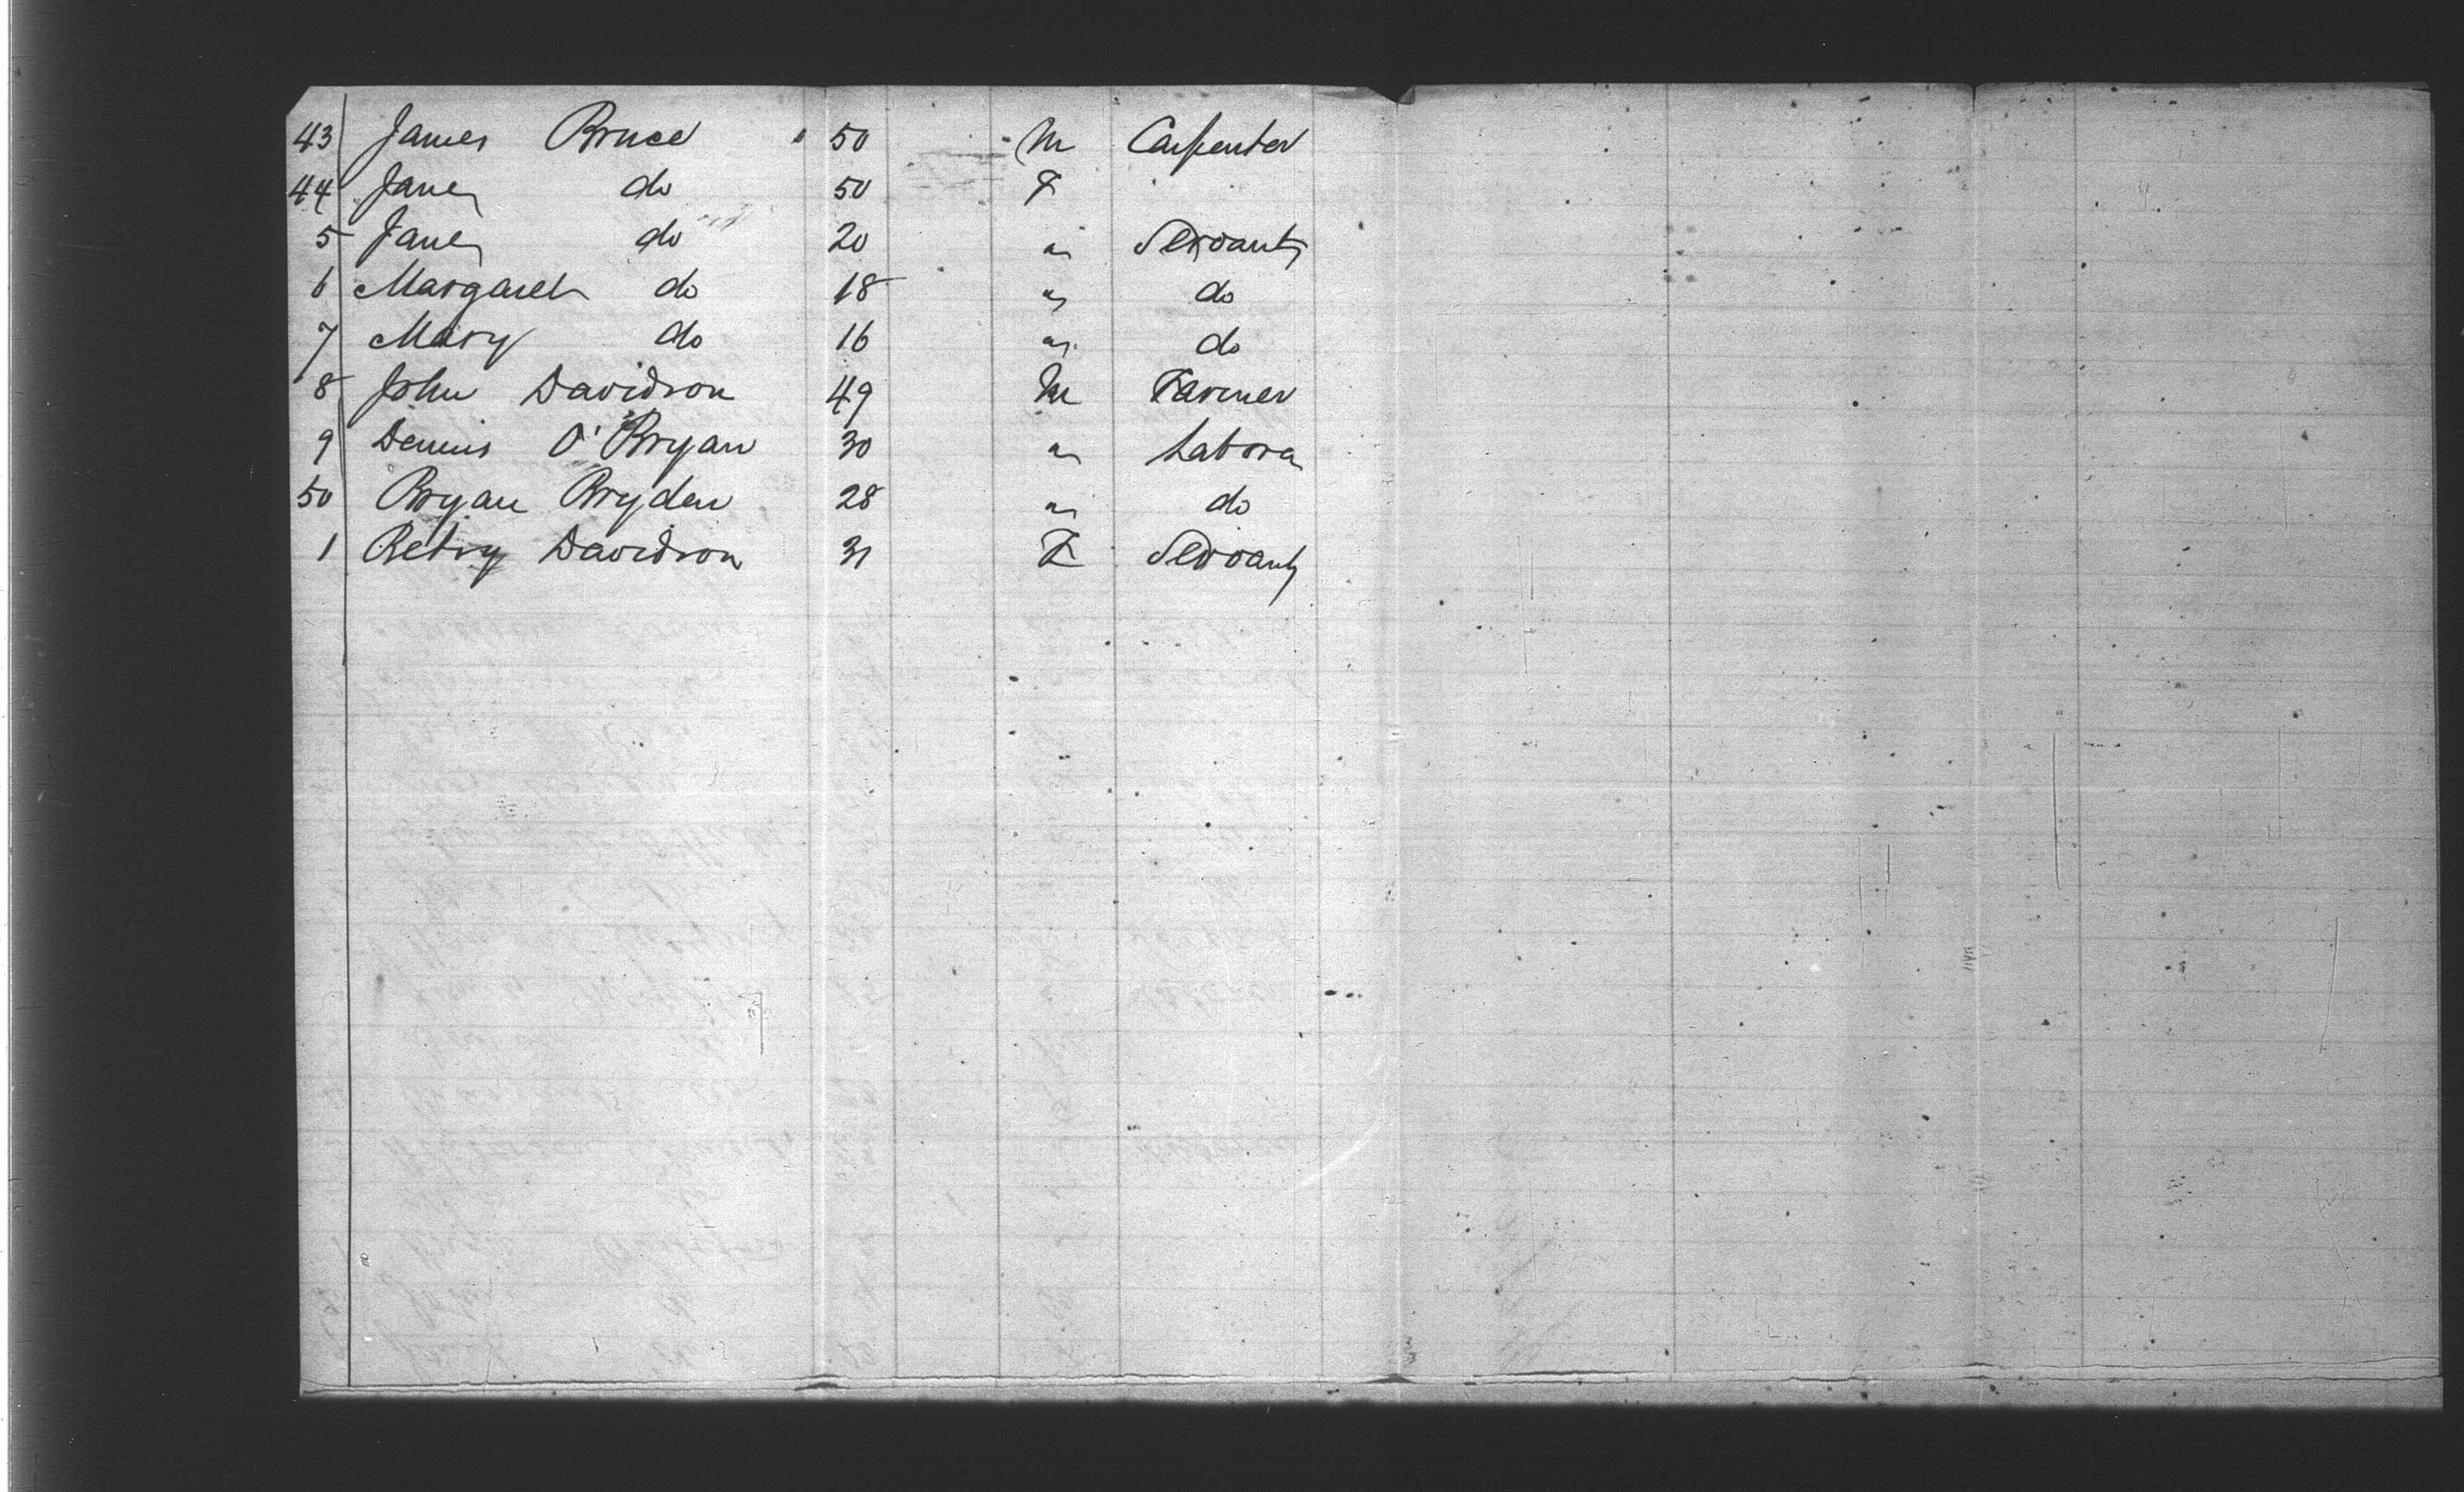 43 James Bruce 50 M Carpenter
44 Jane do 50 F
5 Jane do 20 " Servant
6 Margaret do 18 " do
7 Mary do 16 " do
8 John Davidson 49 M Farmer
9 Dennis O'Bryan 30 " Labora
50 Bryan Bryden 28 " do
1 Betsy Davidson 31 F Servant